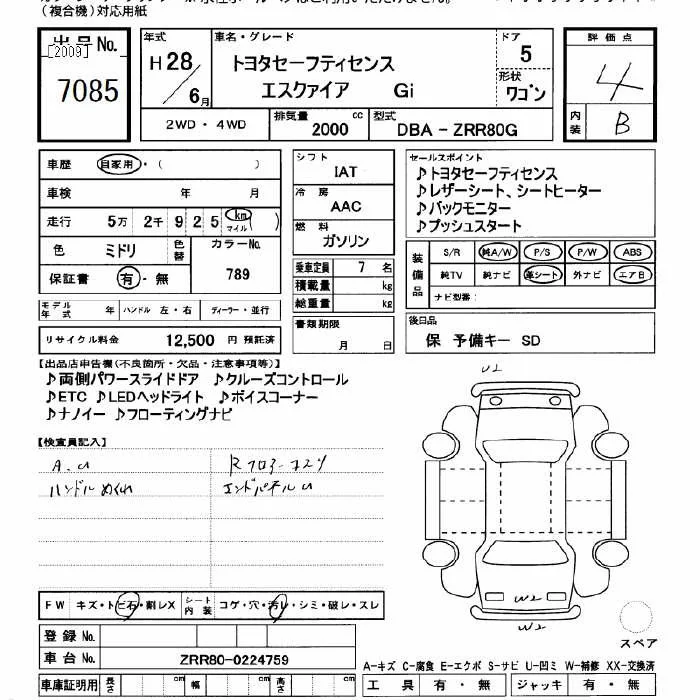 (複合機)対応用紙
出品No.
[2009]
7085
年式
H28/6月
車名・グレード
トヨタセーフティセンス
エスクァイア Gi
ドア
5
形状
ワゴン
評価点
4
内装
B
2WD・4WD
排気量
2000 cc
型式
DBA - ZRR80G
車歴 自家用・( )
車検 年 月
走行 5万 2千 9 2 5 km マイル ( )
色 ミドリ 色替 カラーNo.
789
保証書 有・無
モデル年式 年 ハンドル 左・右 ディーラー・並行
リサイクル料金 12,500 円 預託済
シフト
IAT
冷房
AAC
燃料
ガソリン
乗車定員 7 名
積載量 kg
総重量 kg
書類期限
月 日
セールスポイント
♪トヨタセーフティセンス
♪レザーシート、シートヒーター
♪バックモニター
♪プッシュスタート
装備品
S/R 純A/W P/S P/W ABS
純TV 純ナビ 革シート 外ナビ エアB
ナビ型番:
後日品
保 予備キー SD
【出品店申告欄(不良箇所・欠品・注意事項等)】
♪両側パワースライドドア ♪クルーズコントロール
♪ETC ♪LEDヘッドライト ♪ボイスコーナー
♪ナノイー ♪フローティングナビ
【検査員記入】
A.U
ハンドルめくれ
エンドパネルU
U2
W2 W2
W2
スペア
FW キズ・トビ石・割レX シート内装 コゲ・穴・汚レ・シミ・破レ・スレ
登録No.
車台No. ZRR80-0224759
車庫証明用 長さ cm 幅 cm 高さ cm
A-キズ C-腐食 E-エクボ S-サビ U-凹ミ W-補修 XX-交換済
工具 有・無 ジャッキ 有・無